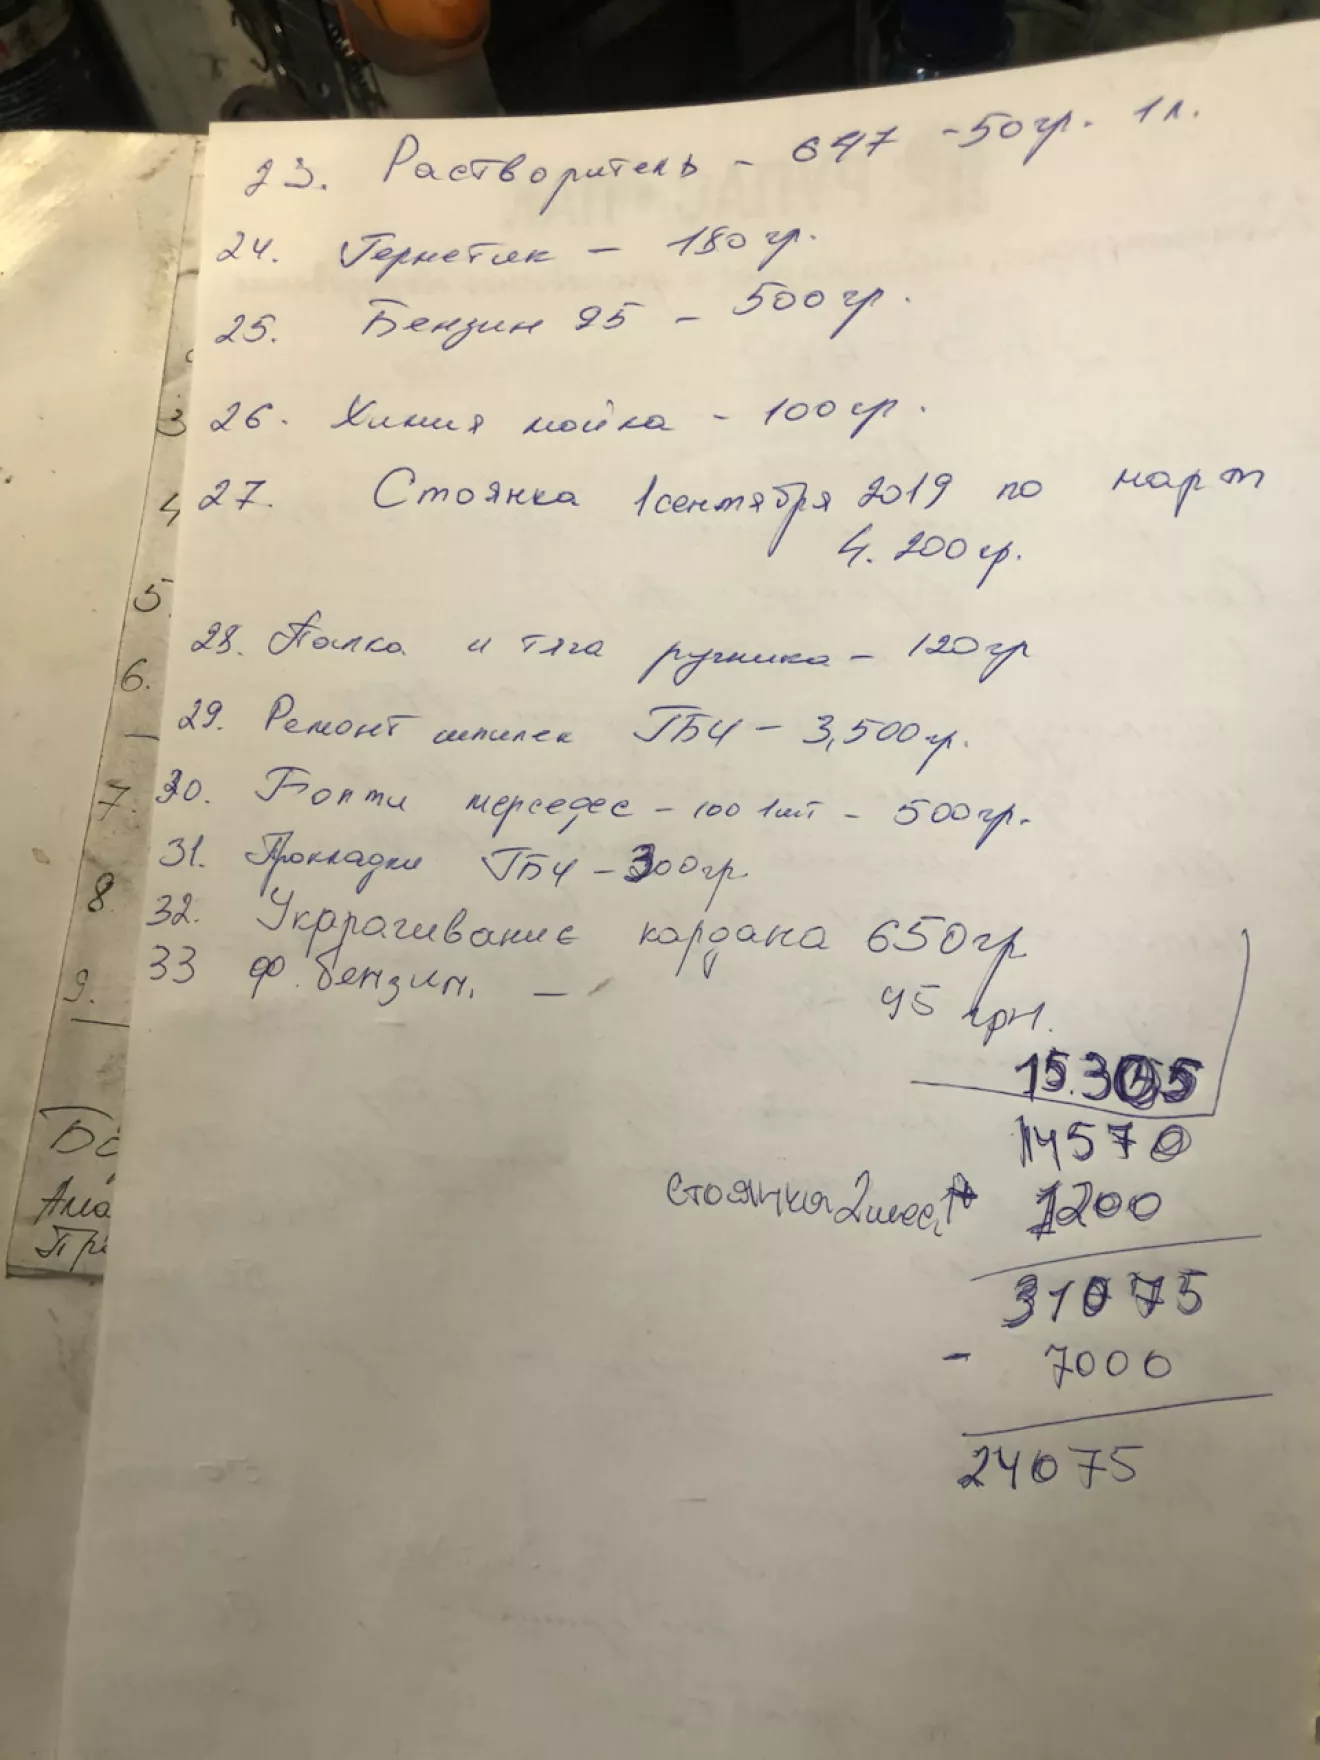 23. Растворитель - 647 -50гр. 1л.
24. Герметик - 180гр.
25. Бензин 95 - 500гр.
26. Химия мойка - 100гр.
27. Стоянка 1сентября 2019 по март
4.200гр.
28. Палка и тяга ручника - 120гр
29. Ремонт шпилек ГБЦ - 3,500гр.
30. Болты мерседес - 100 1шт - 500гр.
31. Прокладки ГБЦ - 300гр.
32. кардана 650гр
33 ф. бензин. - 95 грн.
15.305
14570
стоянка 2мес. 1200
31075
- 7000
24075
3
4
5.
6.
7.
8
9.